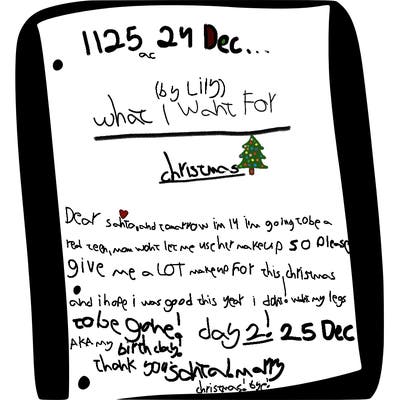 1125 ac 24 Dec...
(by Lily)
What I Want For
christmas
Dear santa, and tomorrow im 14 im going to be a
real teen, mom wont let me use her makeup SO Please
give me a LOT makeup For this christmas
and i hope i was good this year I don't want my legs
to be gone! day 2! 25 Dec
AKA my birthday!
thank you santa! marry
christmas! bye!